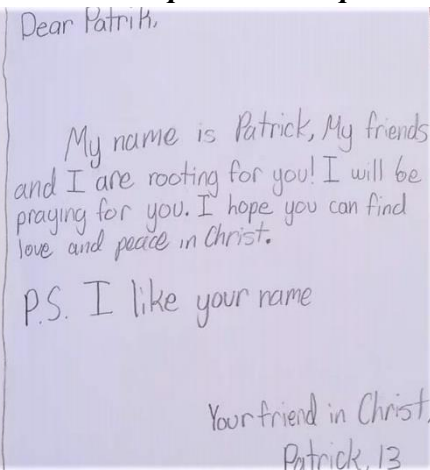 Dear Patrik,
My name is Patrick, My friends
and I are rooting for you! I will be
praying for you. I hope you can find
love and peace in Christ.
P.S. I like your name
Your friend in Christ,
Patrick, 13